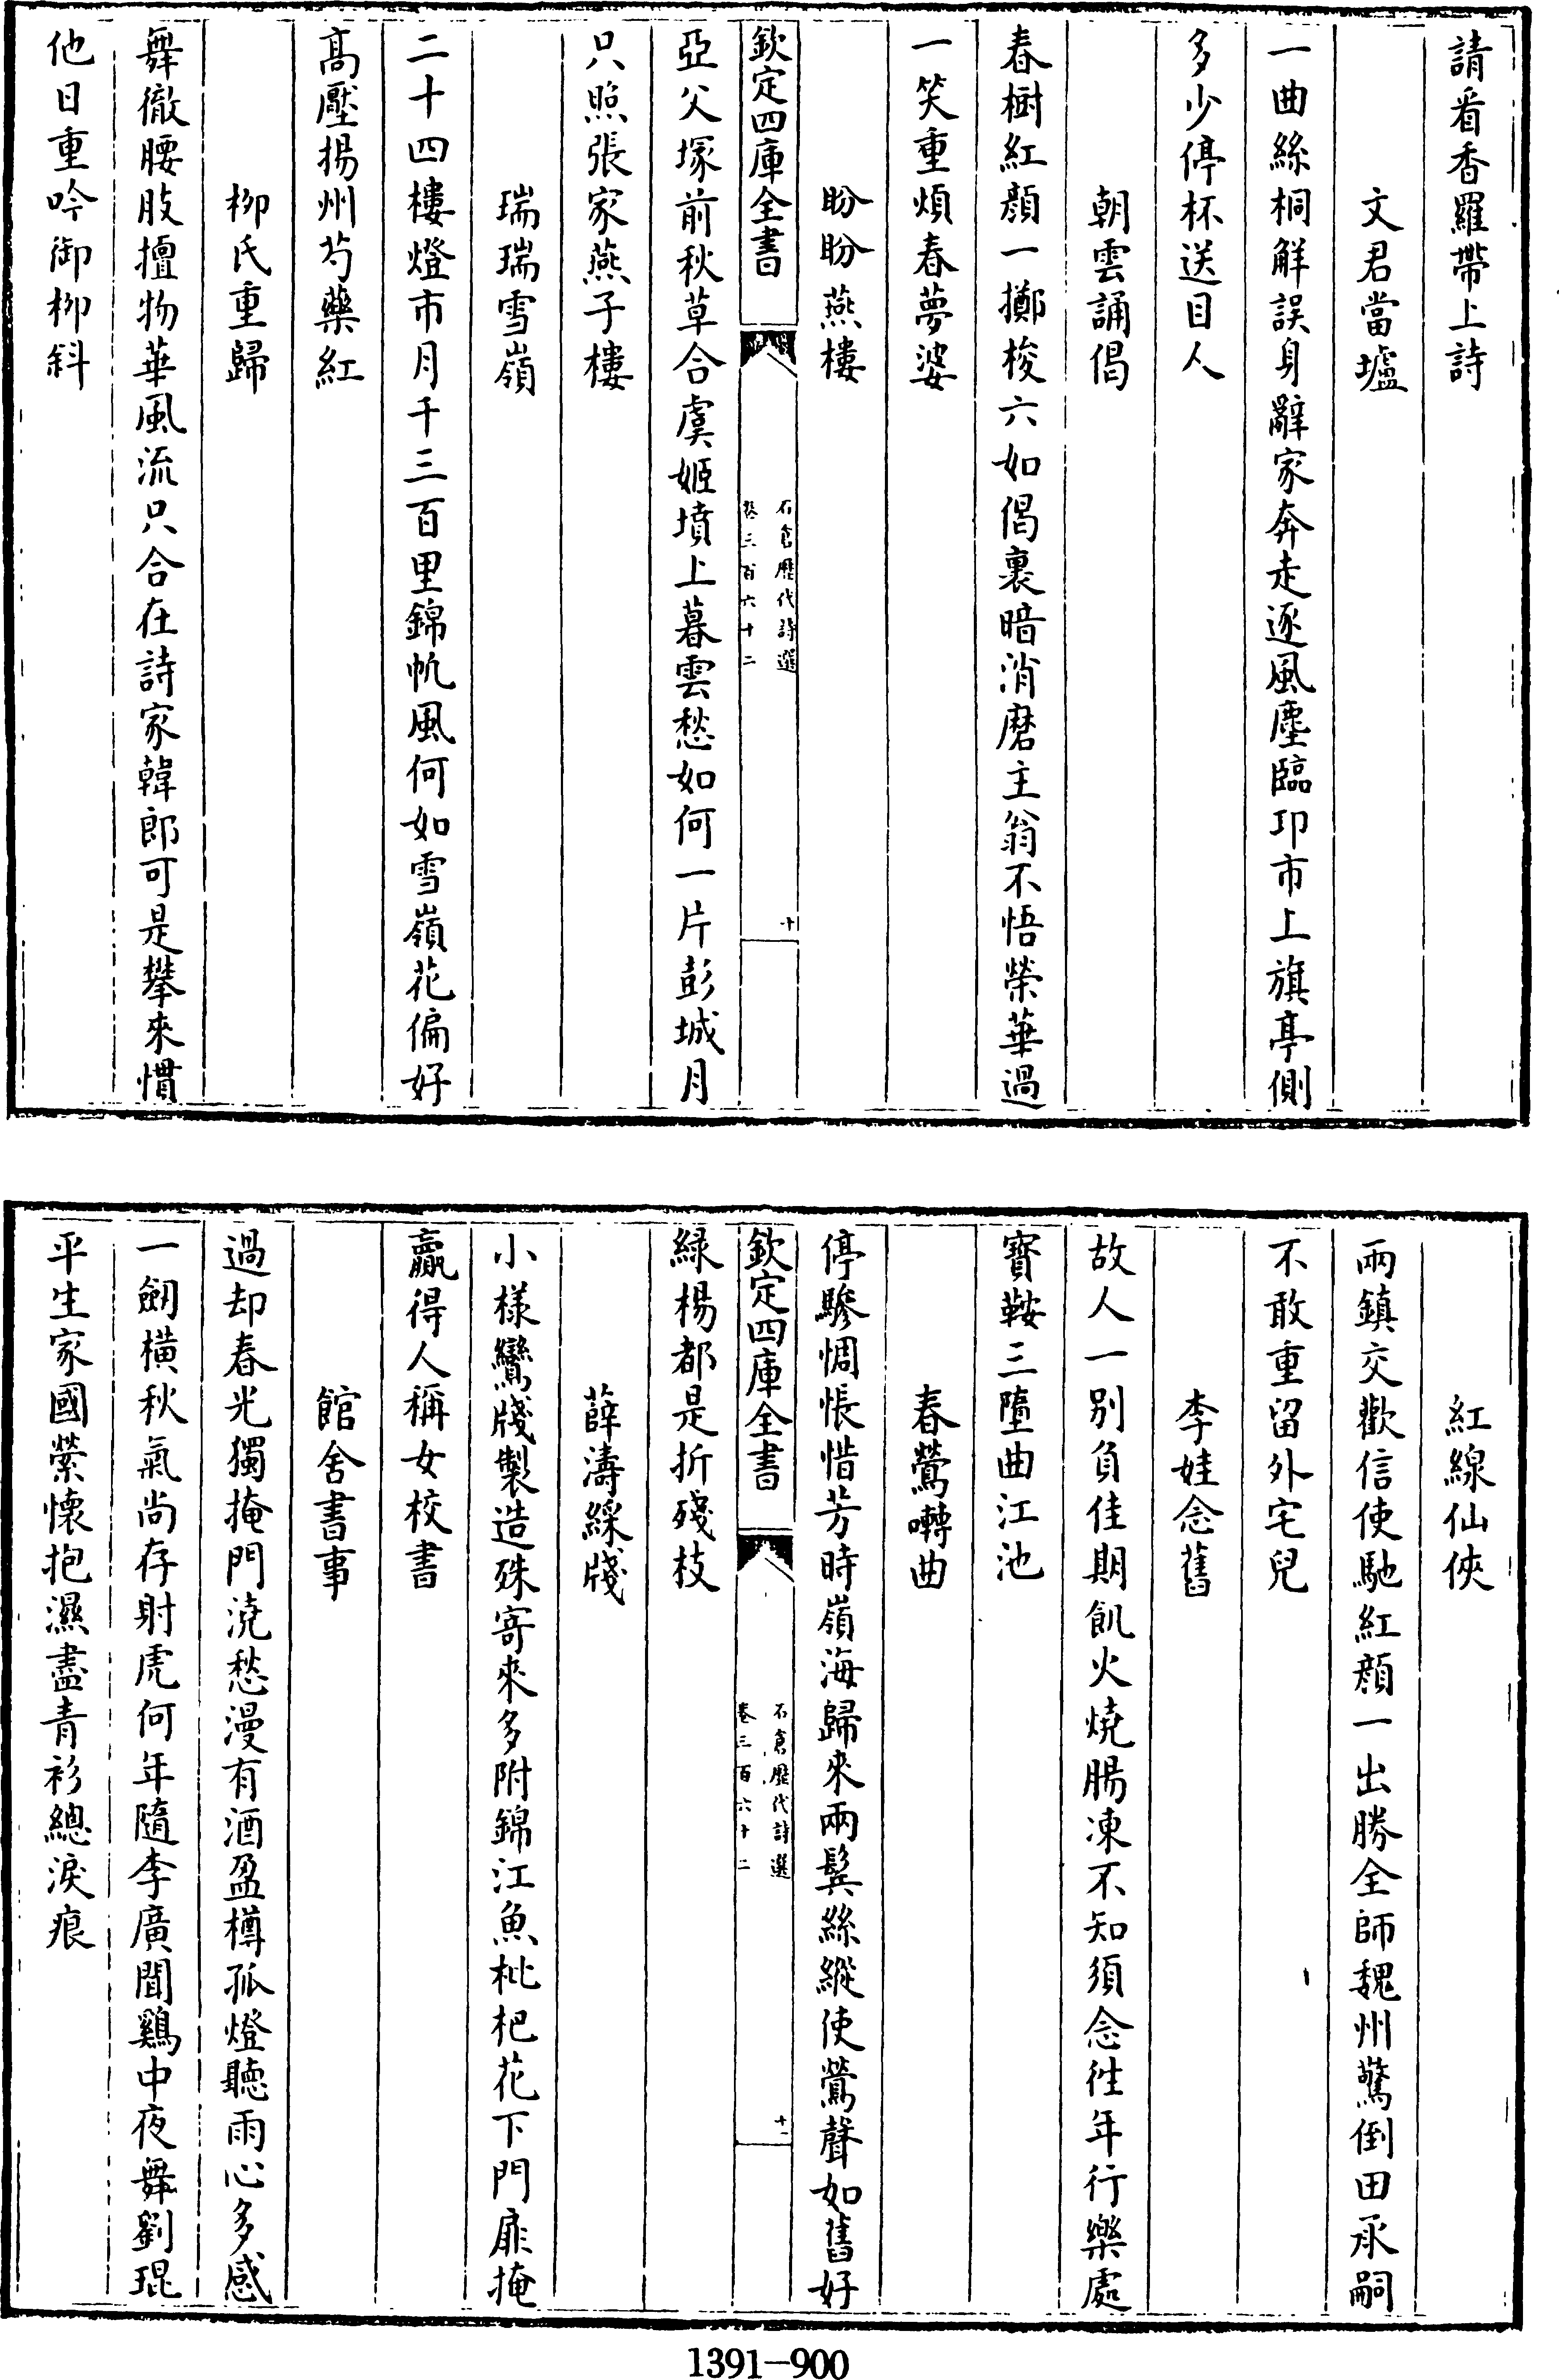 請看香羅帶上詩
文君當壚
一曲絲桐解誤身辭家奔走逐風塵臨卭市上旗亭側
多少停杯送目人
朝雲誦偈
春樹紅顔一擲梭六如偈裏暗消磨主翁不悟榮華過
一笑重煩春夢婆
盼盼燕樓
欽定四庫全書
石倉歷代詩選
卷三百六十二
十
亞父塚前秋草合虞姬墳上暮雲愁如何一片彭城月
只照張家燕子樓
瑞瑞雪嶺
二十四樓燈市月千三百里錦帆風何如雪嶺花偏好
髙壓揚州芍藥紅
柳氏重歸
舞徹腰肢擅物華風流只合在詩家韓郎可是攀來慣
他日重吟御柳斜
紅線仙俠
兩鎮交歡信使馳紅顔一出勝全師魏州驚倒田承嗣
不敢重留外宅兒
李娃念舊
故人一别負佳期飢火燒腸凍不知須念徃年行樂處
寳鞍三墮曲江池
春鶯囀曲
停驂惆悵惜芳時嶺海歸來兩鬂絲縱使鶯聲如舊好
欽定四庫全書
石倉歷代詩選
卷三百六十二
十一
緑楊都是折殘枝
薛濤綵牋
小樣鸞牋製造殊寄來多附錦江魚枇杷花下門扉掩
贏得人稱女校書
館舍書事
過却春光獨掩門澆愁漫有酒盈樽孤燈聽雨心多感
一劒横秋氣尚存射虎何年隨李廣聞鷄中夜舞劉琨
平生家國縈懷抱濕盡青衫總淚痕
1391-900